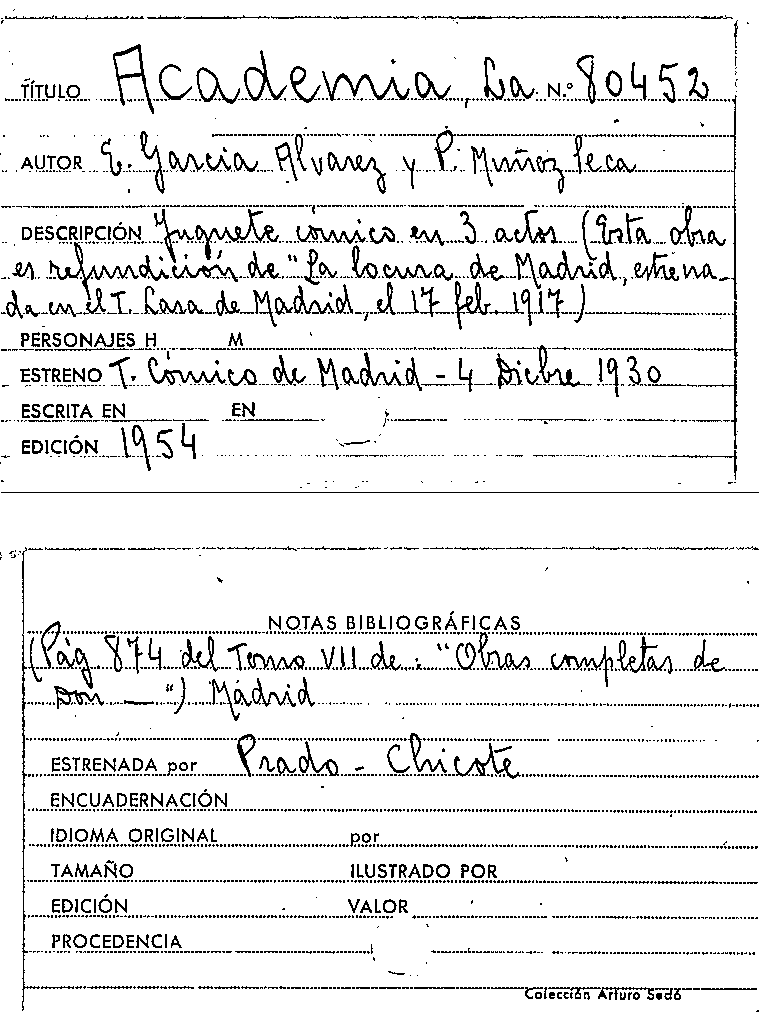 TÍTULO Academia, La N.º 80452
AUTOR E. Garcia Alvarez y P. Muñoz Seca
DESCRIPCIÓN Juguete cómico en 3 actos (Esta obra
es refundición de "La locura de Madrid, estrena-
da en el T. Lara de Madrid, el 17 feb. 1917)
PERSONAJES H M
ESTRENO T. Cómico de Madrid - 4 Dicbre 1930
ESCRITA EN EN
EDICIÓN 1954
NOTAS BIBLIOGRÁFICAS
(Pág 874 del Tomo VII de: "Obras completas de
Don —") Madrid
ESTRENADA por Prado - Chicote
ENCUADERNACIÓN
IDIOMA ORIGINAL por
TAMAÑO ILUSTRADO POR
EDICIÓN VALOR
PROCEDENCIA
Colección Arturo Sedó